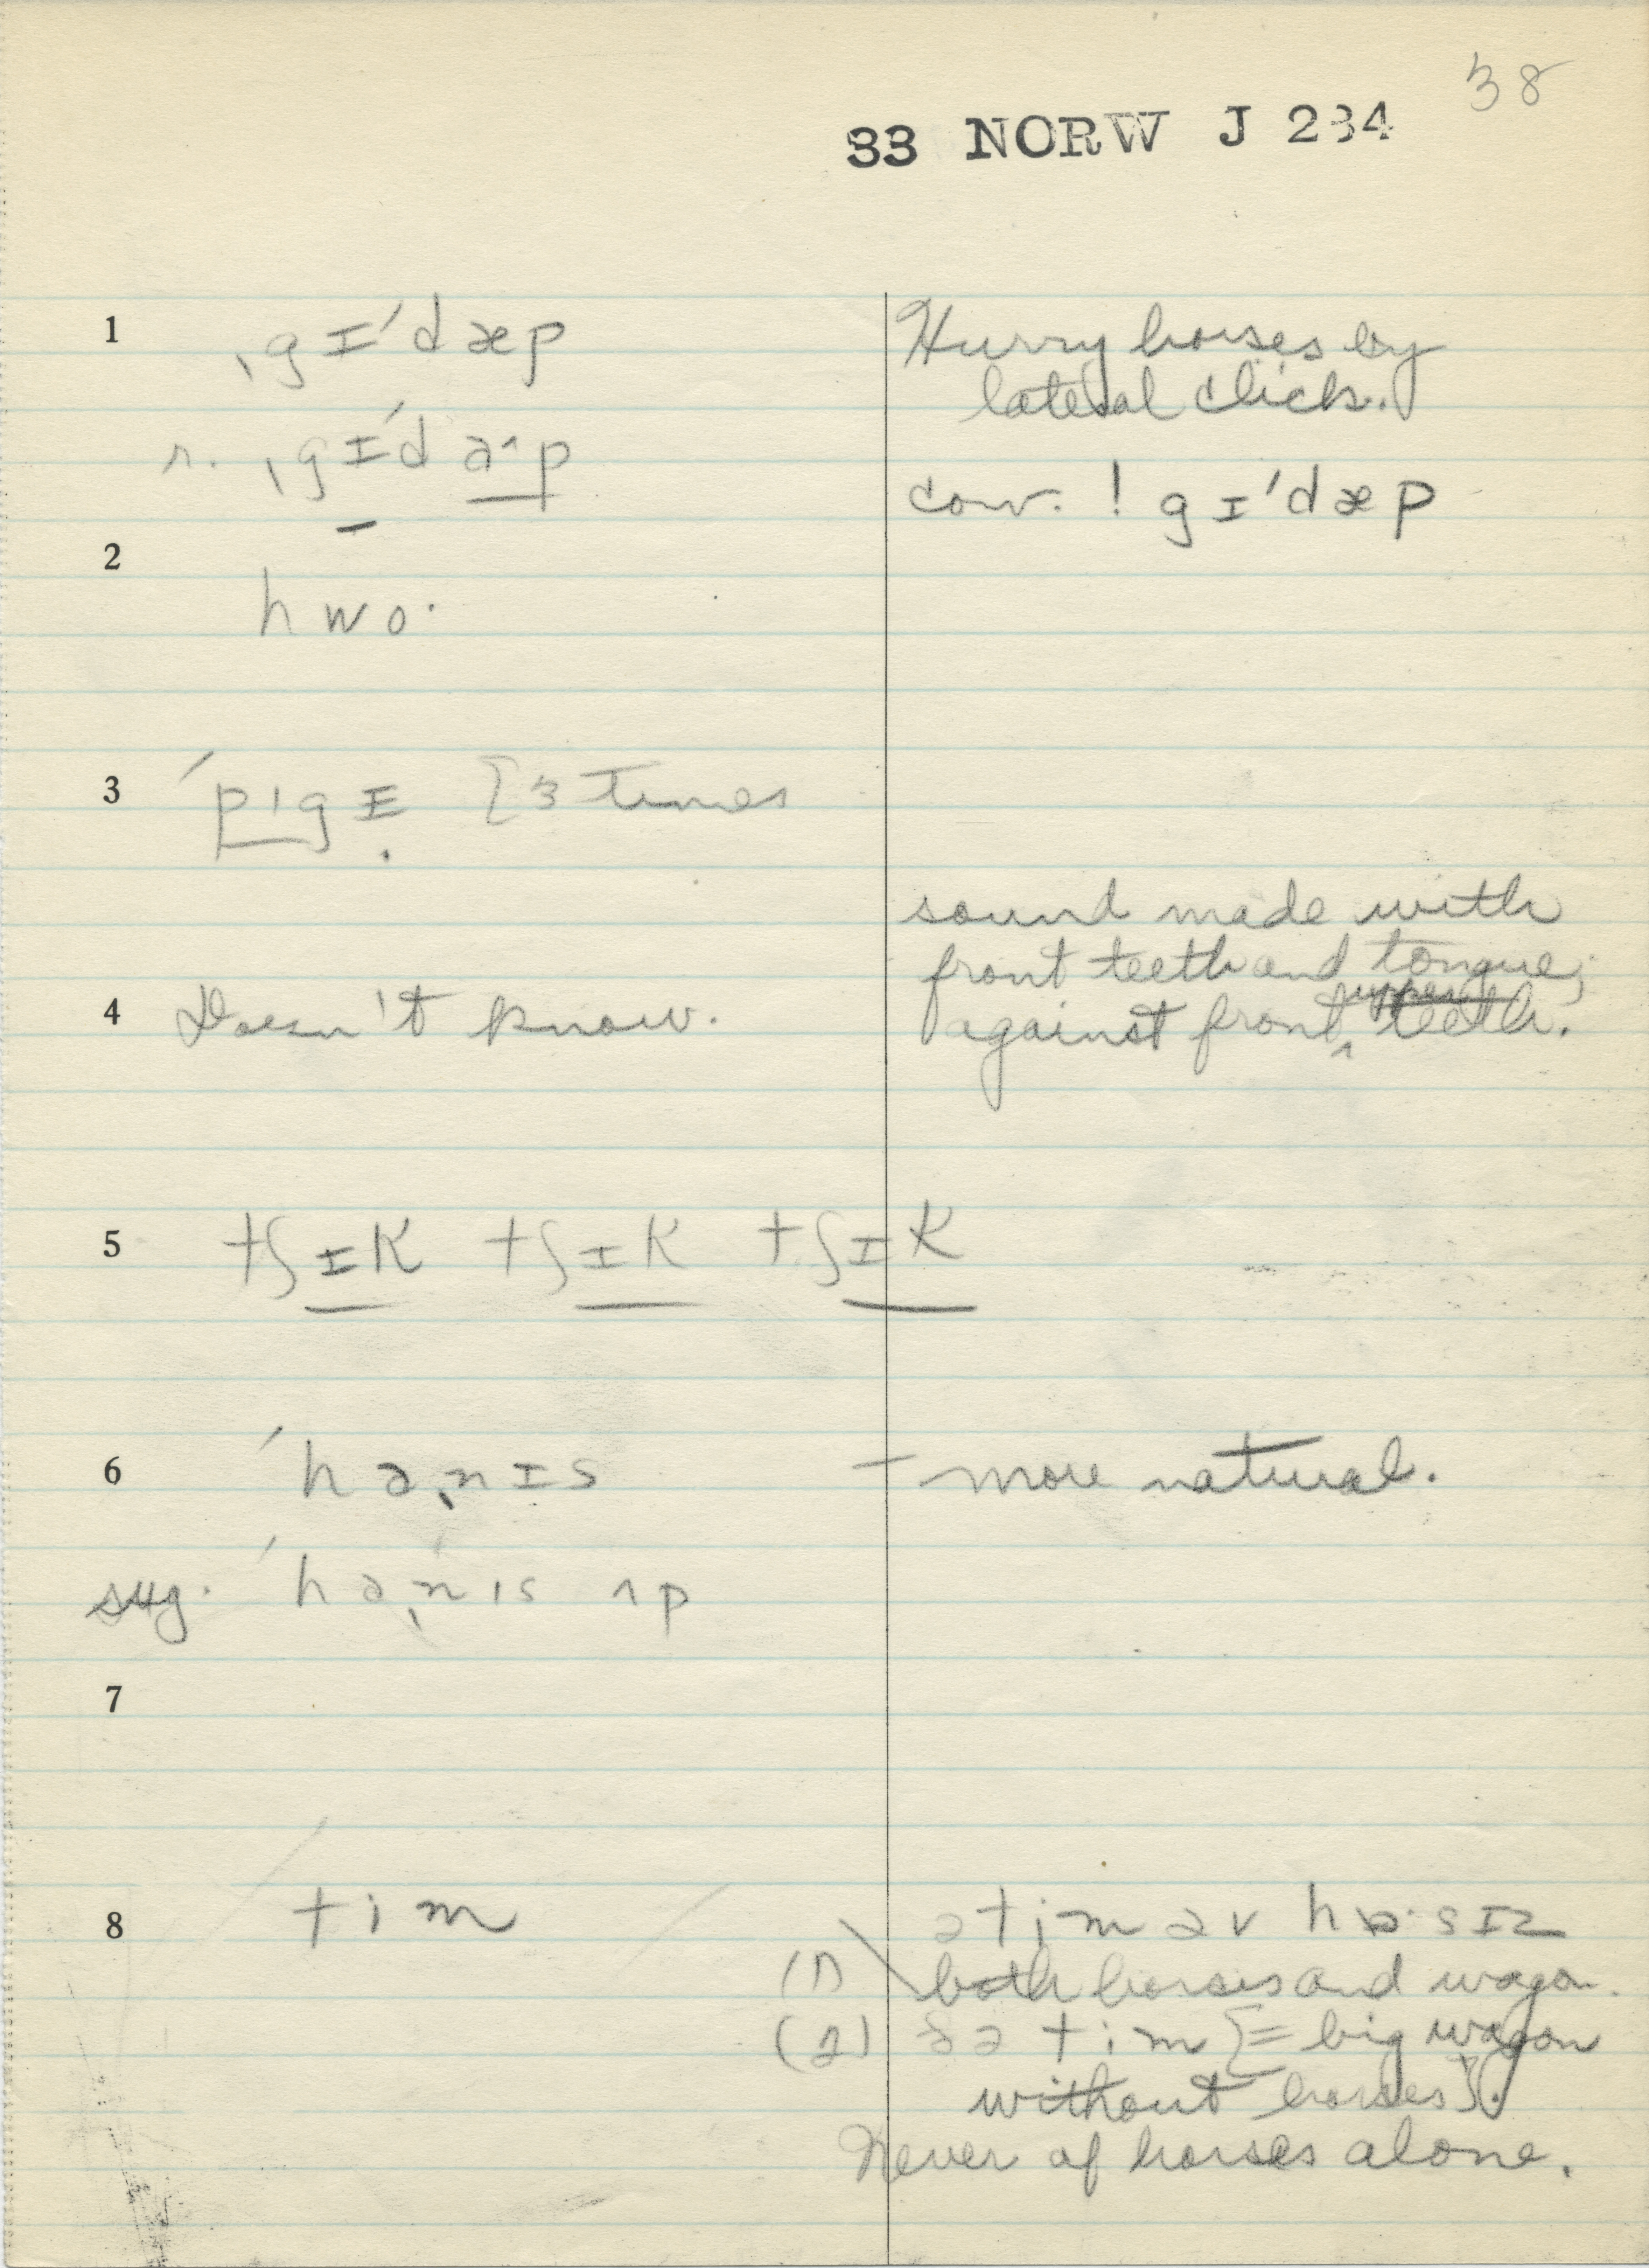 38
33 NORW J 234
1 ˌgɪ'dæp
Hurry horses by
lateral click.
r. ˌgɪ'dəˑp
conv. ! gɪ'dæp
2
hwoˑ
3 'pɪgɪ [3 times
sound made with
front teeth and tongue;
upper
4 Doesn't know. against front ‸ teeth.
5 tʃɪk tʃɪk tʃɪk
6 'hɑˌnɪs – more natural.
sug. 'hɑˌnɪs ʌp
7
8 tim ətim əv hɒˑsɪz
(1) both horses and wagon.
(2) ðə tim [= big wagon
without horses].
Never of horses alone.